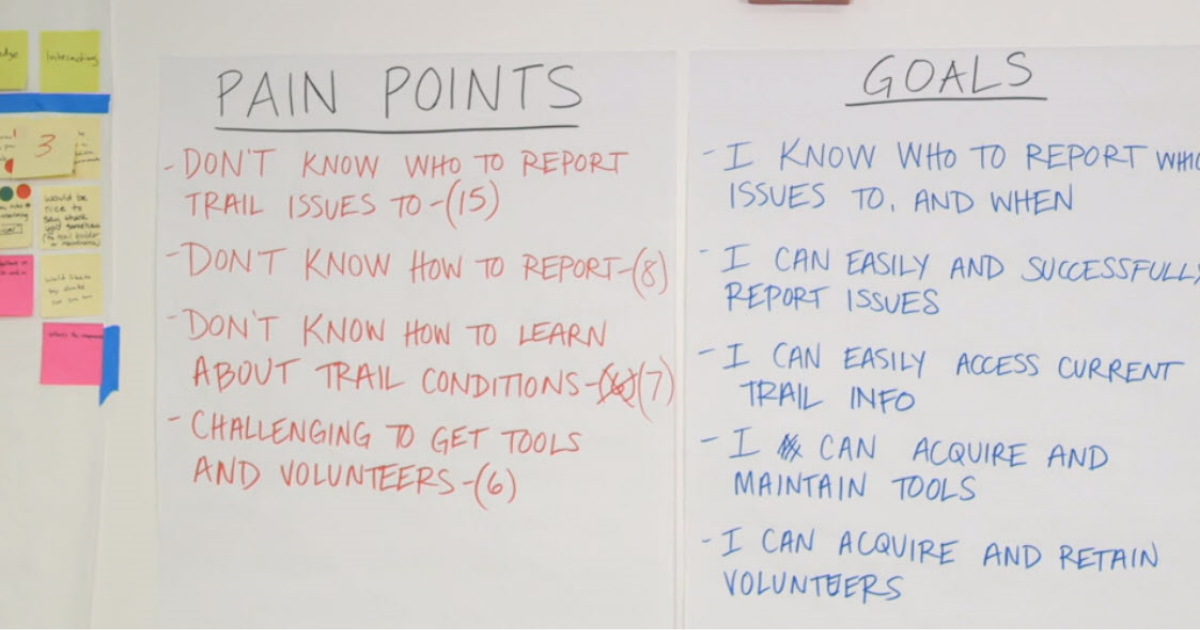 Interacting
3
would be
nice to
say thank
you
PAIN POINTS
- DON'T KNOW WHO TO REPORT
TRAIL ISSUES TO -(15)
- DONT KNOW HOW TO REPORT-(8)
- DON'T KNOW HOW TO LEARN
ABOUT TRAIL CONDITIONS- (7)
- CHALLENGING TO GET TOOLS
AND VOLUNTEERS -(6)
GOALS
- I KNOW WHO TO REPORT
ISSUES TO, AND WHEN
- I CAN EASILY AND SUCCESSFULLY
REPORT ISSUES
- I CAN EASILY ACCESS CURRENT
TRAIL INFO
- I CAN ACQUIRE AND
MAINTAIN TOOLS
- I CAN ACQUIRE AND RETAIN
VOLUNTEERS